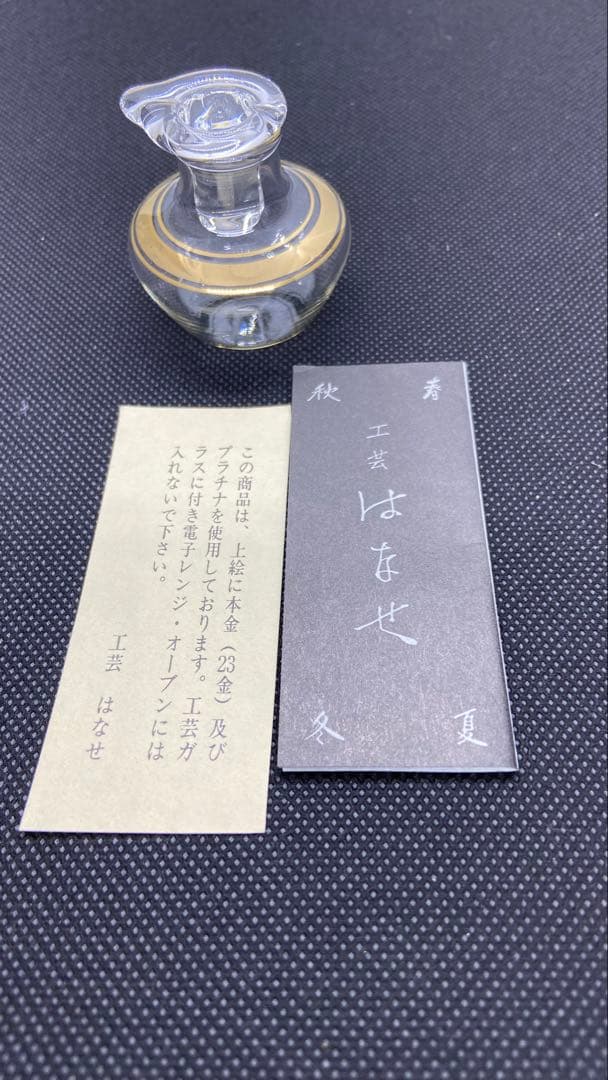 この商品は、上絵に本金（23金）及び
プラチナを使用しております。工芸ガ
ラスに付き電子レンジ・オーブンには
入れないで下さい。
工芸 はなせ
春
秋
工芸
はなせ
夏
冬